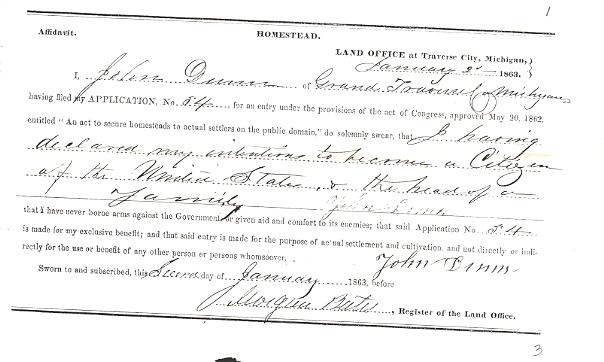 1
Affidavit.
HOMESTEAD.
LAND OFFICE at Traverse City, Michigan, }
January 2d 1863. }
I, John Dunn of Grand Traverse Co Michigan
having filed my APPLICATION, No. 54, for an entry under the provisions of the act of Congress, approved May 20, 1862,
entitled "An act to secure homesteads to actual settlers on the public domain," do solemnly swear, that I having
declared my intentions to become a Citizen
of the United States, & the head of a
family John Dunn
that I have never borne arms against the Government, or given aid and comfort to its enemies; that said Application No. 54
is made for my exclusive benefit; and that said entry is made for the purpose of actual settlement and cultivation, and not directly or indi-
rectly for the use or benefit of any other person or persons whomsoever. John Dunn
Sworn to and subscribed, this Second day of January 1863, before
Morgan Bates, Register of the Land Office.
3